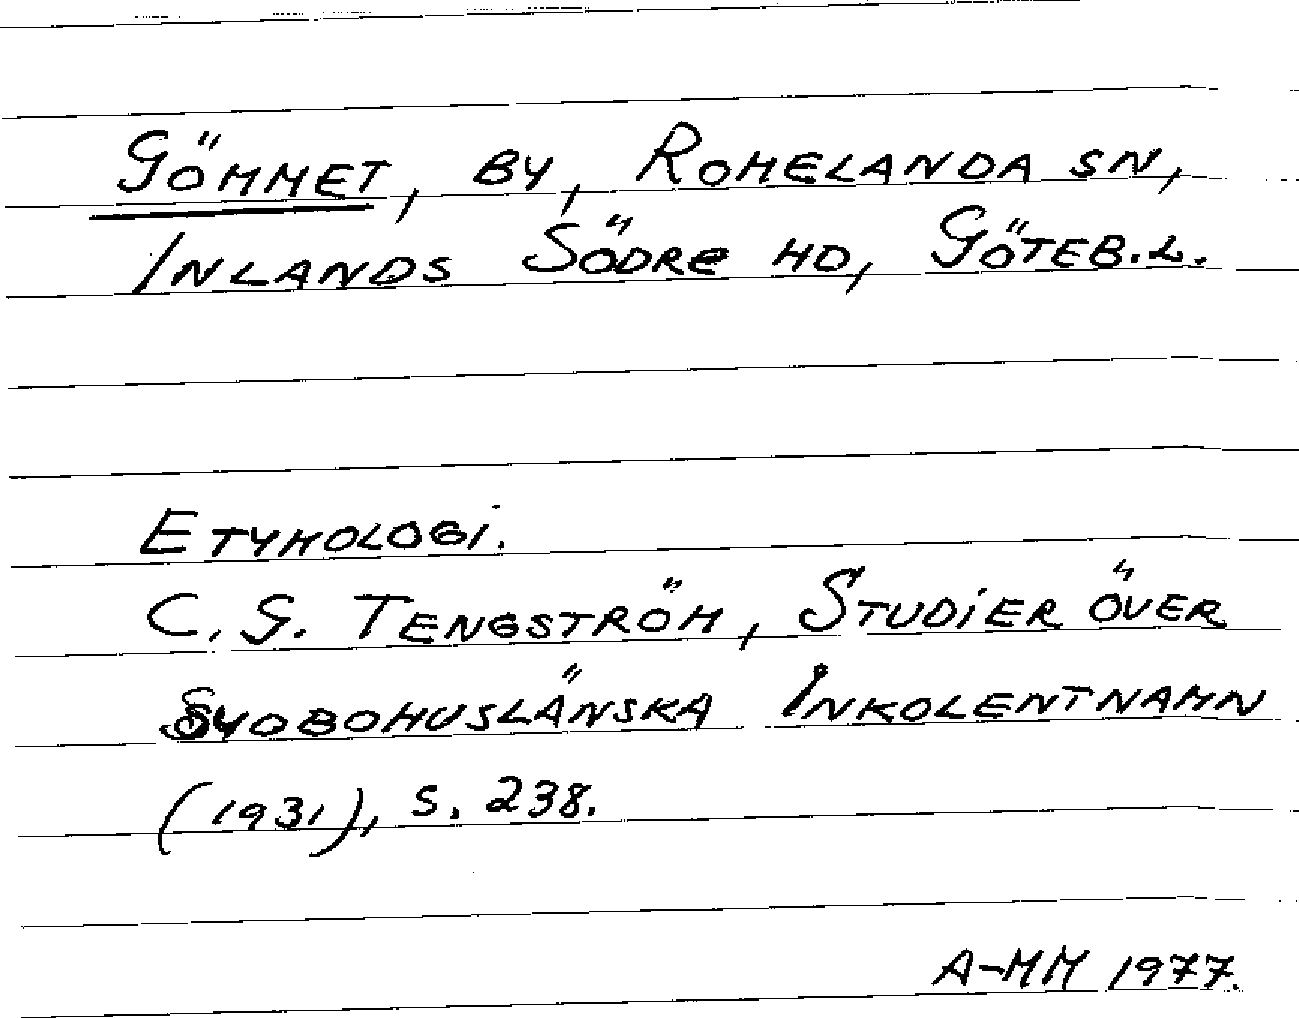 GÖMMET, BY, ROMELANDA SN,
INLANDS SÖDRE HD, GÖTEB.L.
ETYMOLOGI.
C. G. TENGSTRÖM, STUDIER ÖVER
SYDBOHUSLÄNSKA INKOLENTNAMN
(1931), S. 238.
A-MM 1977.